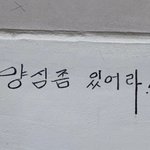 양심좀 있어라.